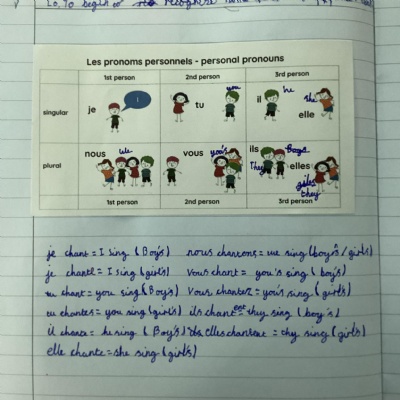 Lo, To begin to recognise
Les pronoms personnels - personal pronouns
1st person 2nd person 3rd person
singular je I tu you il he she elle
plural nous we vous you's ils They Boys elles girls they
1st person 2nd person 3rd person
je chant = I sing (Boy's) nous chantons = we sing (boy's/girls)
je chante = I sing (girl's) vous chant = you's sing (boy's)
tu chant = you sing (Boy's) vous chantez = you's sing (girl's)
tu chantes = you sing (girl's) ils chantent thy sing (boy's)
il chante = he sing (Boy's) elles chantent = thy sing (girl's)
elle chante = she sing (girl's)